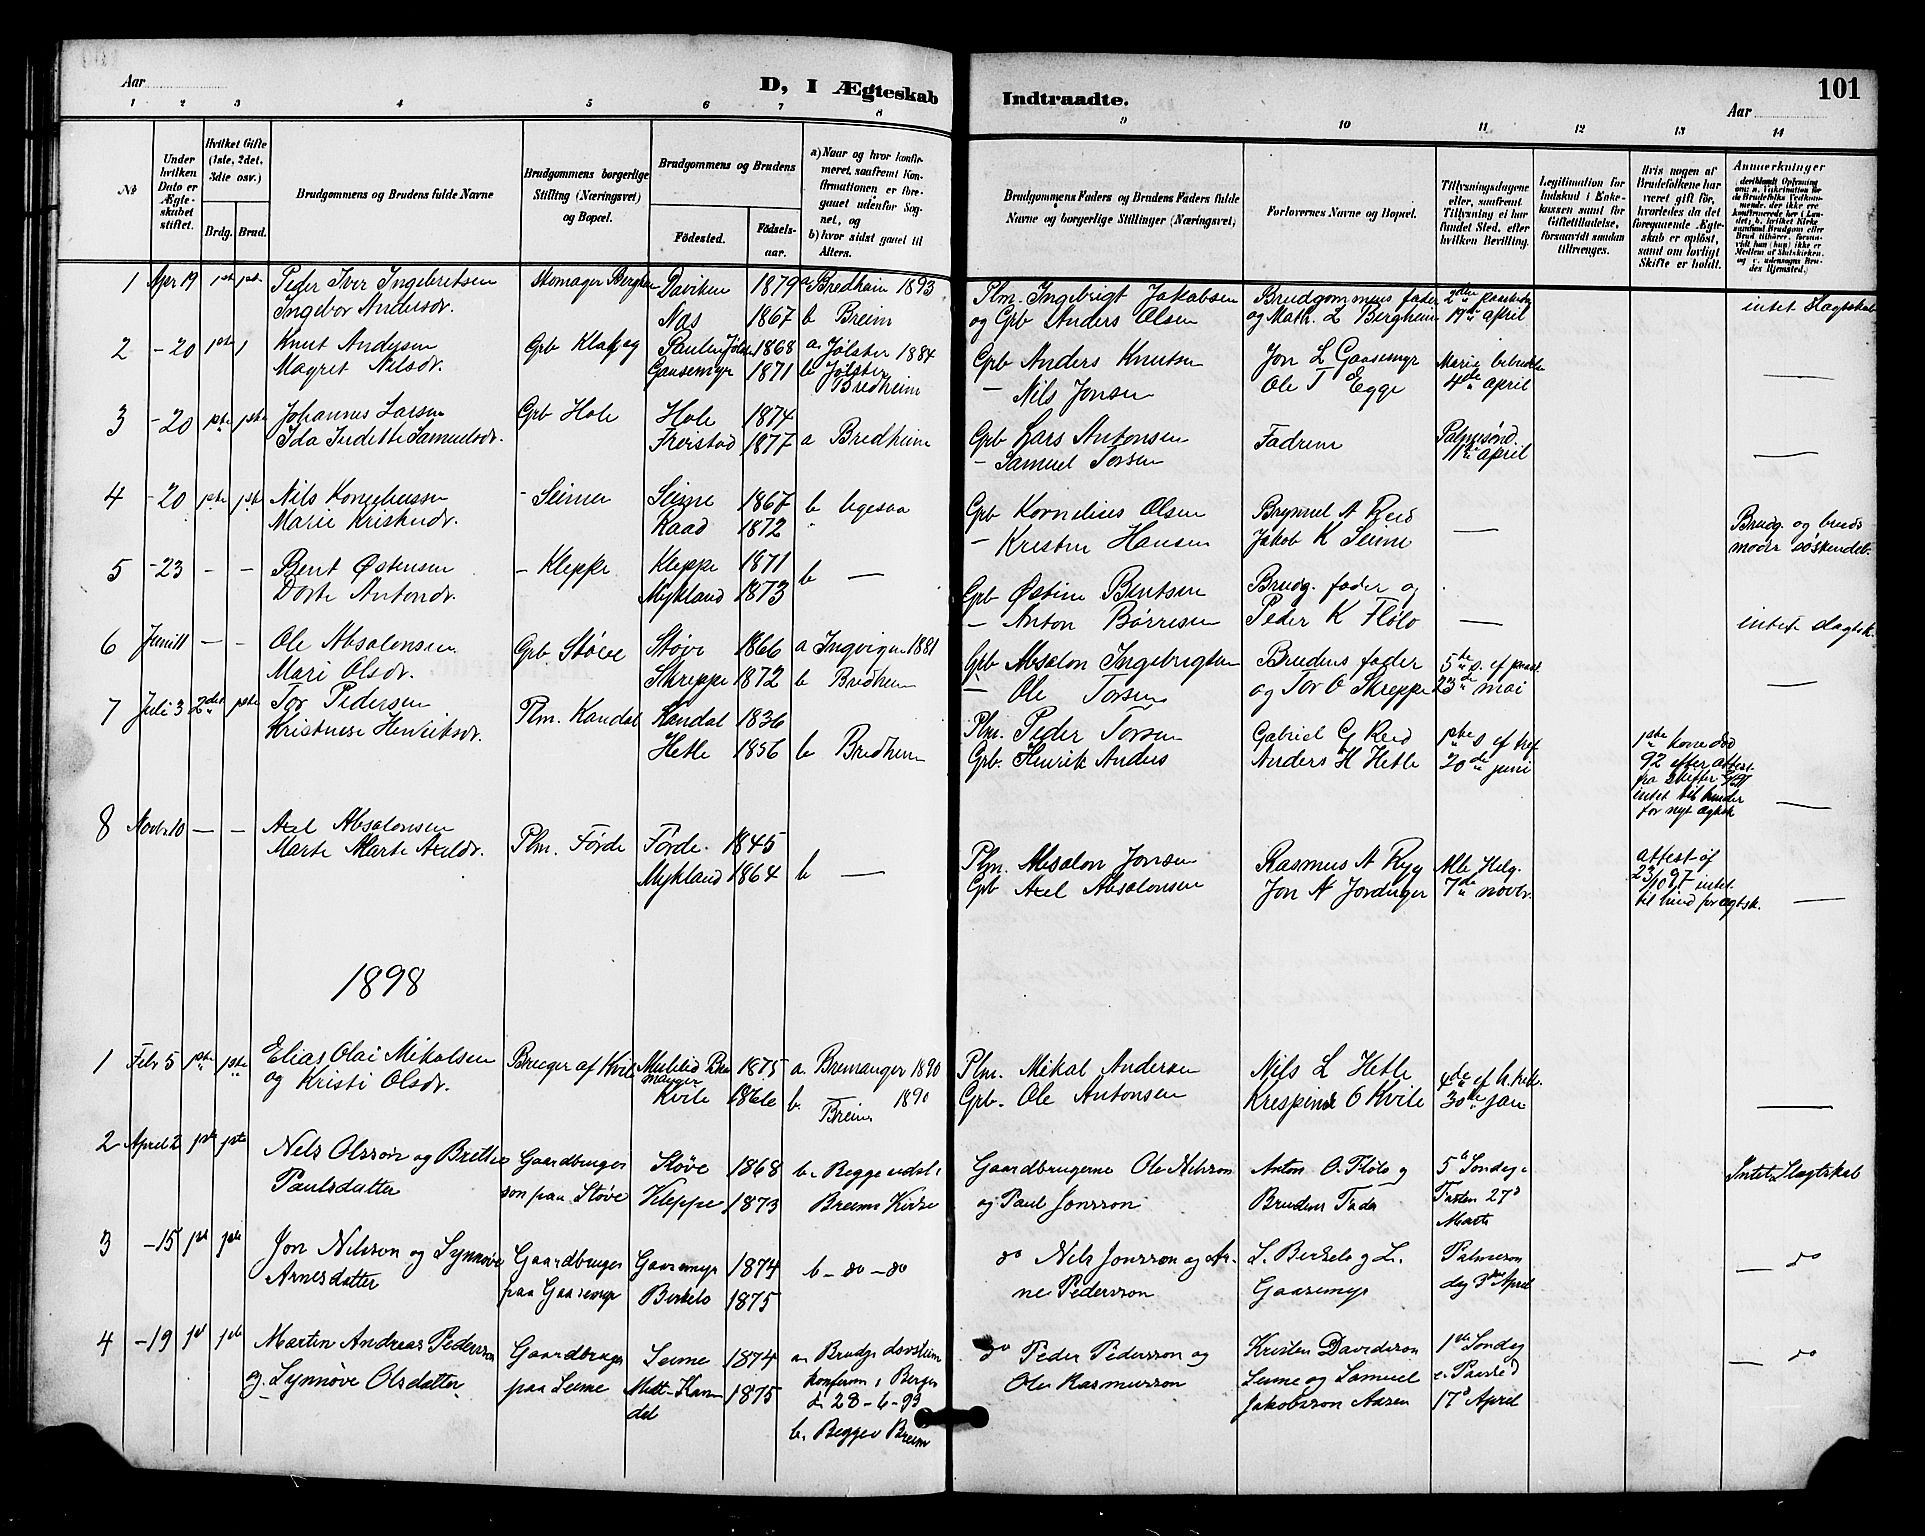 Aar
D, I Ægteskab
Indtraadte.
Aar
101
1 2 3 4 5 6 7 8 9 10 11 12 13 14
No
Under hvilken Dato er Ægteskabet stiftet.
Hvilket Gifte (1ste, 2det, 3die osv.)
Brdg. Brud.
Brudgommens og Brudens fulde Navne
Brudgommens borgerlige Stilling (Næringsvei) og Bopæl.
Brudgommens og Brudens
Födested. Födselsaar.
a) Naar og hvor konfirmeret, saafremt Konfirmationen er foregaaet udenfor Sognet, og
b) hvor sidst gaaet til Alters.
Brudgommens Faders og Brudens Faders fulde Navne og borgerlige Stillinger (Næringsvei)
Forlovernes Navne og Bopæl.
Tillysningsdagene eller, saafremt Tillysning ei har fundet Sted, efter hvilken Bevilling.
Legitimation for Indskud i Enkekassen samt for Giftetilladelse, forsaavidt saadan tiltrænges.
Hvis nogen af Brudefolkene har været gift för, hvorledes da det foregaaende Ægteskab er oplöst, samt om lovligt Skifte er holdt.
Anmærkninger
1 Apr 19 1ste 1ste Peder Iver Ingebretsen
Ingebor Andersdr.
Skomager Bergheim
Daviken 1879 a Bredheim 1893
Nos 1867 b Breim
Plm. Ingebrigt Jakobsen
og Grb Anders Olsen
Brudgommens fader
og Math. L Bergheim
2den paaskedag
19de april
intet slagtskab
2 -20 1ste 1 Knut Andersen
Magret Nilsdr.
Grb Klakeg
Jølster 1868 a Jølster 1884
Gaasemyr 1871 b Jølster
Bredheim
Grb Anders Knutsen
— Nils Jonsen
Jon L Gaasemyr
Ole T Egge
Marie bebud
4de april
—
3 -20 1ste 1ste Johannes Larsen
Ida Indette Samuelsdr.
Grb Hole
Hole 1874
Freistad 1877 a Bredheim
Grb Lars Antonsen
— Samuel Torsen
Fadrene
Palmesönd.
11te april
—
4 -20 1ste 1ste Nils Korneliussen
Marie Kristendr.
- Seime
Seime 1867 b ligesaa
Raad 1872 "
Grb Kornelius Olsen
— Kristen Hansen
Brynnel A Reed
Jakob K Seime
—
Brudg. og bruds
moder søskendeb.
5 -23 - - Bent Østensen
Dorte Antondr.
- Kleppe
Kleppe 1871
Mykland 1873 b —
Grb Østen Bentsen
— Anton Børresen
Brudg. fader og
Peder K Flölo
—
intet slagtsk.
6 Juni 11 — - Ole Absalonsen
Mari Olsdr.
Grb. Støve
Støve 1866 a Ingvigen 1881
Skreppe 1872 b Bredheim
Grb Absalon Ingebrigtsen
— Ole Torsen
Brudens fader
og Tor O Skreppe
5te s. ef paask
23de mai
—
7 Juli 3 2det 1ste Tor Pedersen
Kristnese Henriksdr.
Plm. Kandal
Kandal 1836
Hetle 1856 b Bredheim
Plm. Peder Torsen
Grb. Henrik Anders
Gabriel G Reed
Anders H Hetle
1ste s ef tref
20de juni
1ste kone död
92 efter attest
fra skifter
intet til hinder
for nyt ægtsk
—
8 Novbr 10 — - Axel Absalonsen
Marte Marte Axeldr.
Plm. Førde
Førde. 1845
Mykland 1864 b —
Plm. Absalon Jonsen
Grb Axel Absalonsen
Rasmus A Ryg
Jon A Jordanger
Alle Helg.
7de novbr.
attest af
23/10 97 intet
til hind for ægtsk.
—
1898
1 Febr 5 1ste 1ste Elias Olai Mikalsen
og Kristi Olsdr.
Bruger af Kvile
1875 a. Bremanger 1890
Kvile 1866 b. Breim 1890
Plm. Mikal Andersen
Grb. Ole Antonsen
Nils L Hetle
Krespinus O Kvile
4de s ef h. trek.
30te jan
—
2 April 2 1ste 1ste Nels Olsson og Brethe
Paulsdatter
Gaardbruger
son paa Støve
Støve 1868 b. Begge udst i
Kleppe 1873 Breims Kirke
Gaardbrugerne Ole Nelsson
og Paul Jonsson
Anton O. Flölo og
Brudens Fader
5te Söndag i
Fasten 27de
Marts
Intet Slægtskab
3 -15 1ste 1ste Jon Nelsson og Synnøve
Arnesdatter
Gaardbruger
paa Gaasemyr
Gaasemyr 1874 b - do - do
Birkelo 1875
do Nels Jonsson og Ar-
ne Pedersson
S. Birkelo og L.
Gaasemyr
Palmeson
dag 3die April
— do
4 -19 1ste 1ste Martin Andreas Pedersson
og Synnøve Olsdatter
Gaardbruger
paa Seime
Seime 1874 a. Brudgs
Midt-Kan- 1875 konfirm i Bergen
del d. 28-6-93
b. Begge i Breim
do Peder Pedersson og
Ole Rasmusson
Kristen Davidsson
Seime og Samuel
Jakobsson Aasen
1ste Söndag
e. Paaske
17de April
— do